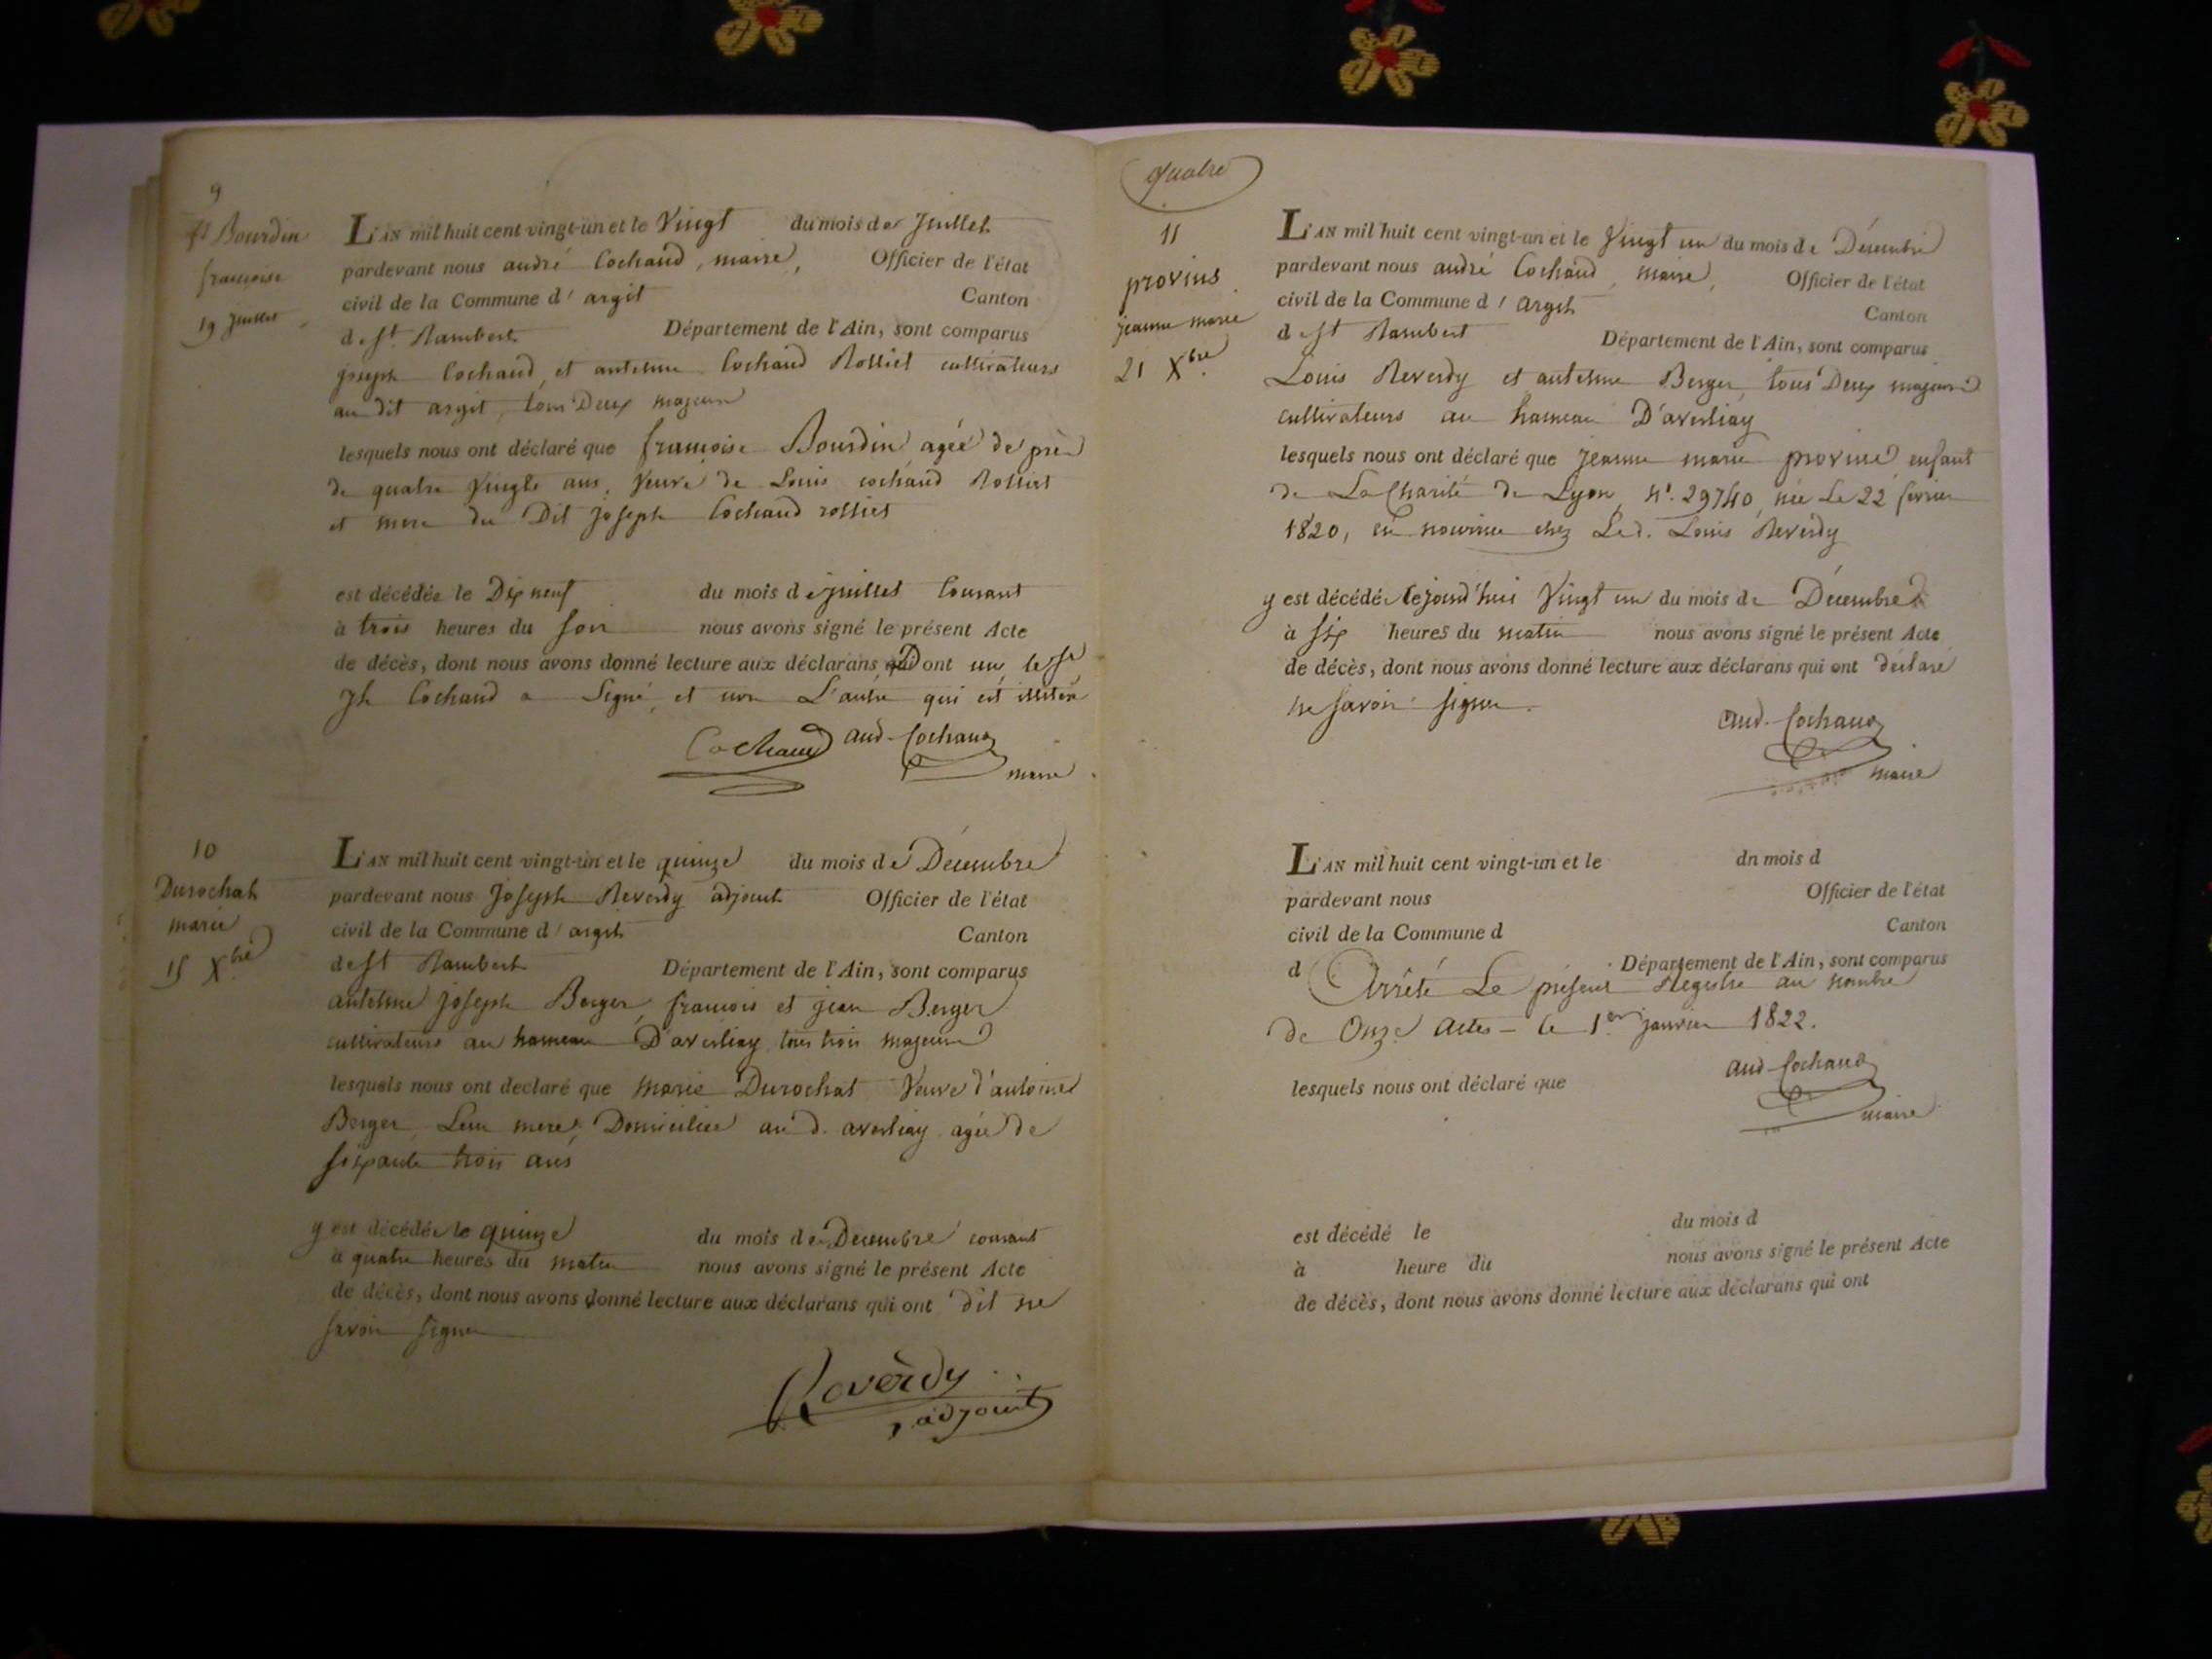 9
Bourdin
françoise
19 juillet
L'AN mil huit cent vingt-un et le Vingt du mois de Juillet
pardevant nous andré Cochaud, maire, Officier de l'état
civil de la Commune d'argit Canton
de St Rambert Département de l'Ain, sont comparus
joseph Cochaud et antelme Cochaud Rolliet cultivateurs
au dit argit, tous Deux majeurs
lesquels nous ont déclaré que françoise Bourdin agée de près
de quatre Vingts ans, Veuve de Louis cochaud Rolliet
et mere du Dit Joseph Cochaud rolliet
est décédée le Dix neuf du mois de juillet Courant
à trois heures du soir nous avons signé le présent Acte
de décès, dont nous avons donné lecture aux déclarans Dont un le
Jh Cochaud a Signé, et non L'autre qui est
Cochaud and. Cochaud
maire
10
Durochat
marie
15 Xbre
L'AN mil huit cent vingt-un et le quinze du mois de Décembre
pardevant nous Joseph Reverdy adjoint Officier de l'état
civil de la Commune d'argit Canton
de St Rambert Département de l'Ain, sont comparus
antelme joseph Berger, françois et jean Berger
cultivateurs au hameau D'averliay tous trois majeurs
lesquels nous ont déclaré que marie Durochat Veuve d'antoine
Berger, Leur mere, Domiciliée au d. averliay agée de
soixante trois ans
y est décédée le quinze du mois de Décembre courant
à quatre heures du matin nous avons signé le présent Acte
de décès, dont nous avons donné lecture aux déclarans qui ont dit ne
savoir signer
Reverdy
adjoint
quatre
11
provins
jeanne marie
21 Xbre
L'AN mil huit cent vingt-un et le Vingt un du mois de Décembre
pardevant nous andré Cochaud, maire, Officier de l'état
civil de la Commune d'argit Canton
de St Rambert Département de l'Ain, sont comparus
Louis Reverdy et antelme Berger, tous Deux majeurs
cultivateurs au hameau D'averliay
lesquels nous ont déclaré que jeanne marie provins enfant
de La Charité de Lyon, N°. 29740, née Le 22 fevrier
1820, en nourrice chez Led. Louis Reverdy
y est décédée cejourd'hui Vingt un du mois de Décembre
à six heures du matin nous avons signé le présent Acte
de décès, dont nous avons donné lecture aux déclarans qui ont déclaré
ne savoir signer.
and. Cochaud
maire
L'AN mil huit cent vingt-un et le dn mois d
pardevant nous Officier de l'état
civil de la Commune d Canton
d Département de l'Ain, sont comparus
Arrêté Le présent Registre au nombre
de Onze Actes - le 1er janvier 1822.
lesquels nous ont déclaré que
and. Cochaud
maire
est décédé le du mois d
à heure du nous avons signé le présent Acte
de décès, dont nous avons donné lecture aux déclarans qui ont